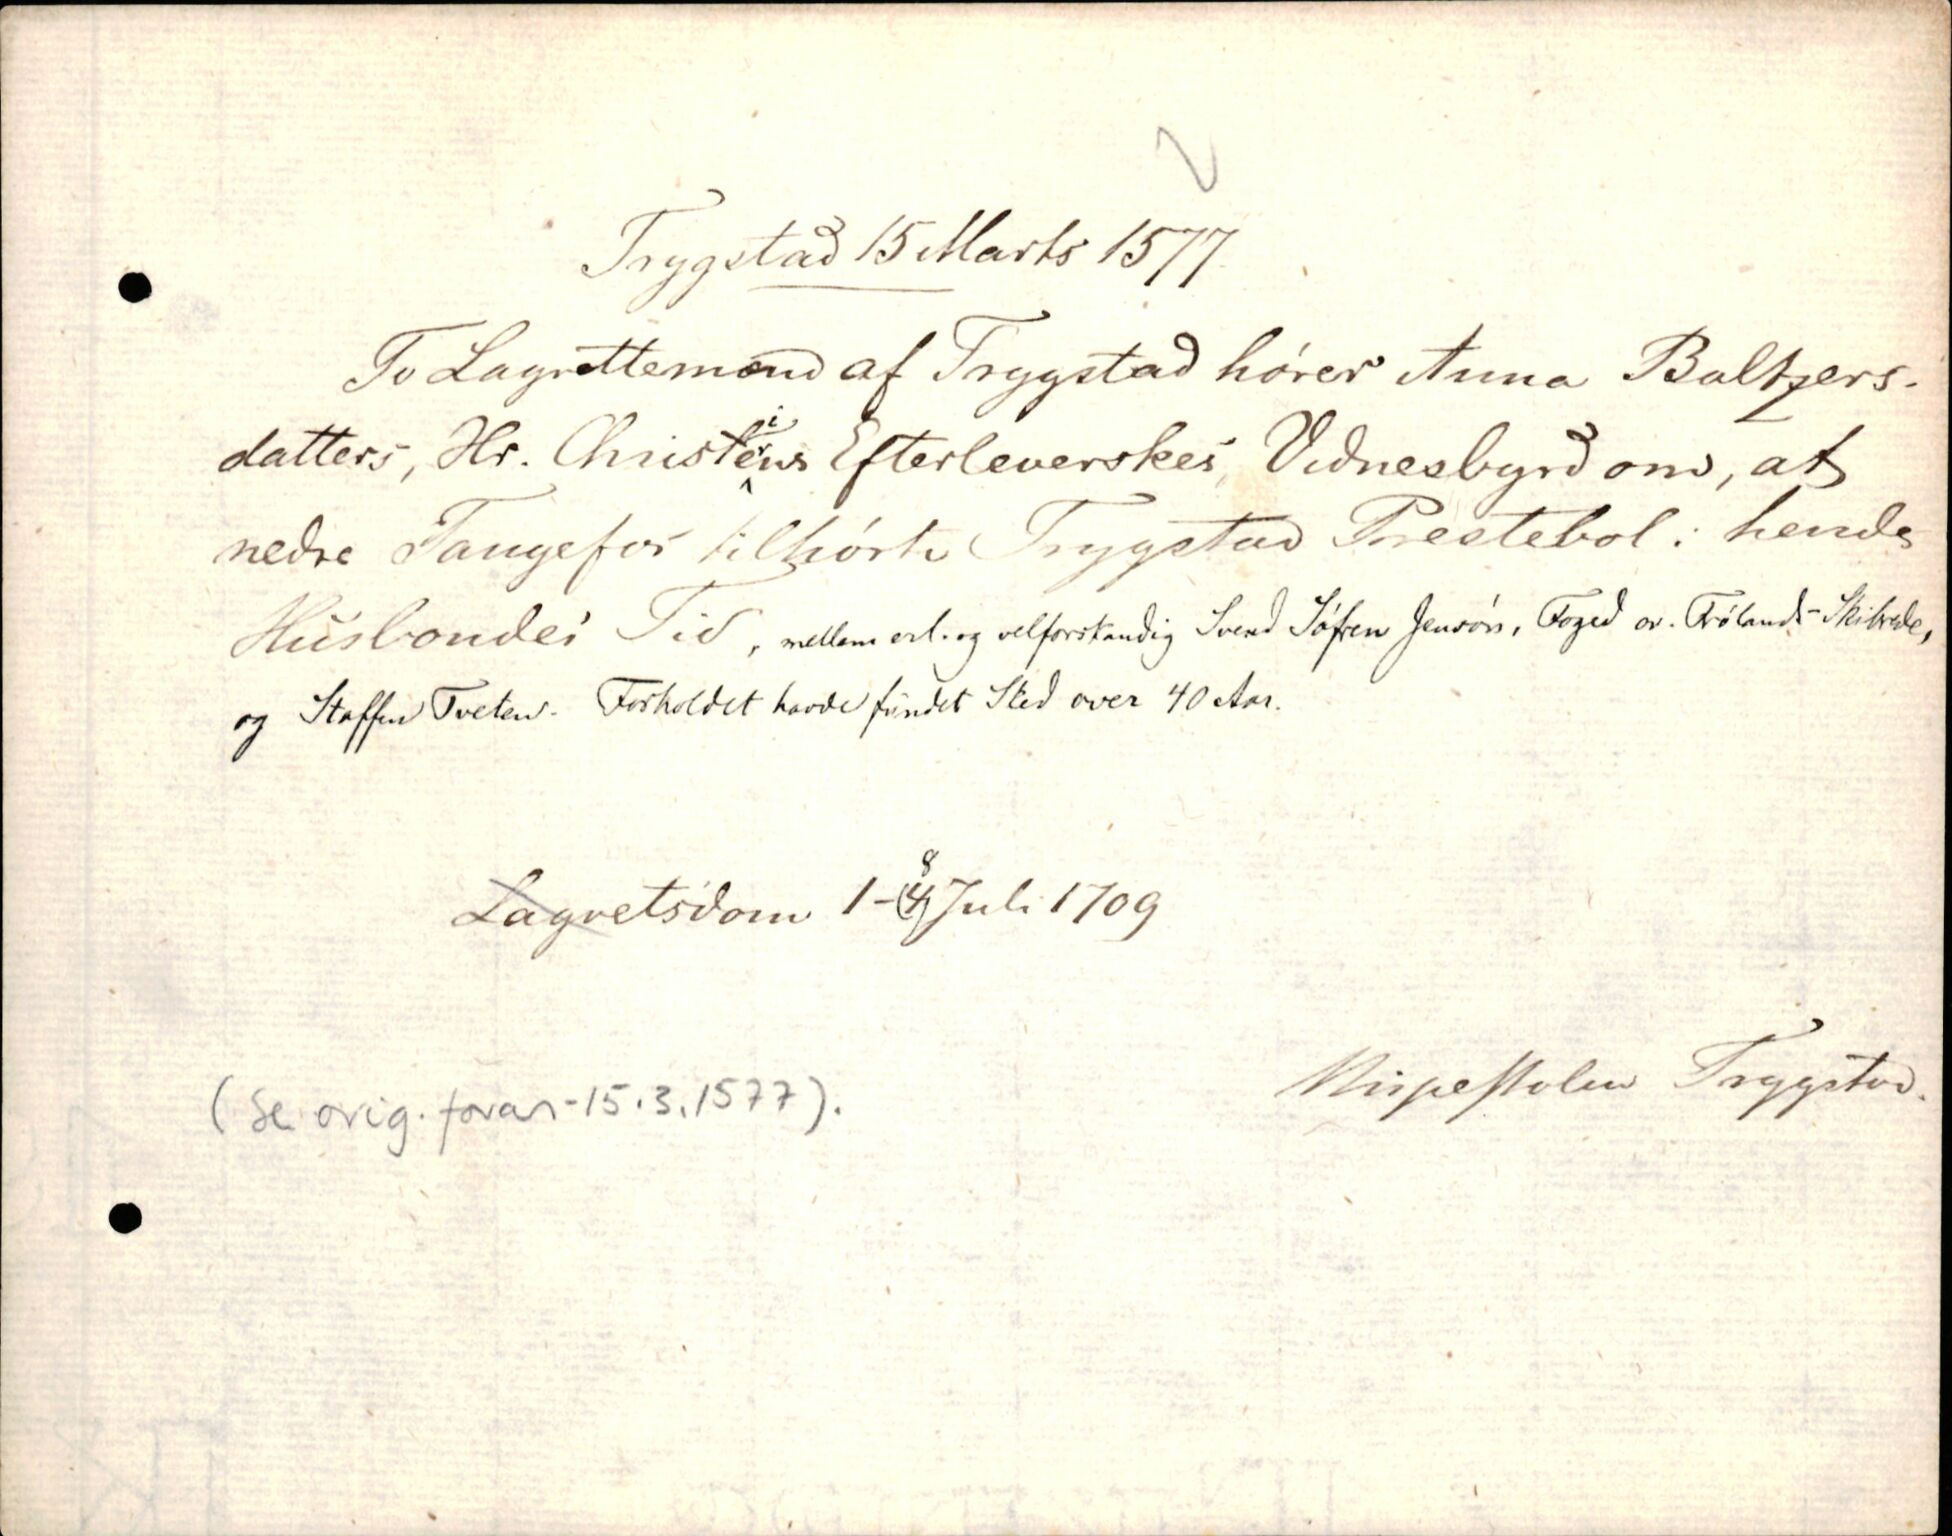 Trygstad 15 Marts 1577
To Lagrettemænd af Trygstad hører Anna Baltzers-
datters, Hr. Christiens Efterleverskes, Vidnesbyrd om, at
nedre Tangefos tilhørte Trygstad Prestebol i hendes
Husbondes Tid, mellem erl. og velforstandig Svend Søfren Jensøn, Foged ov. Frølands-Skibrede,
og Staffen Tveten. Forholdet havde fundet Sted over 40 Aar.
Lagretsdom 1-8 Juli 1709
Trygstad.
(Se orig. foran - 15.3.1577).